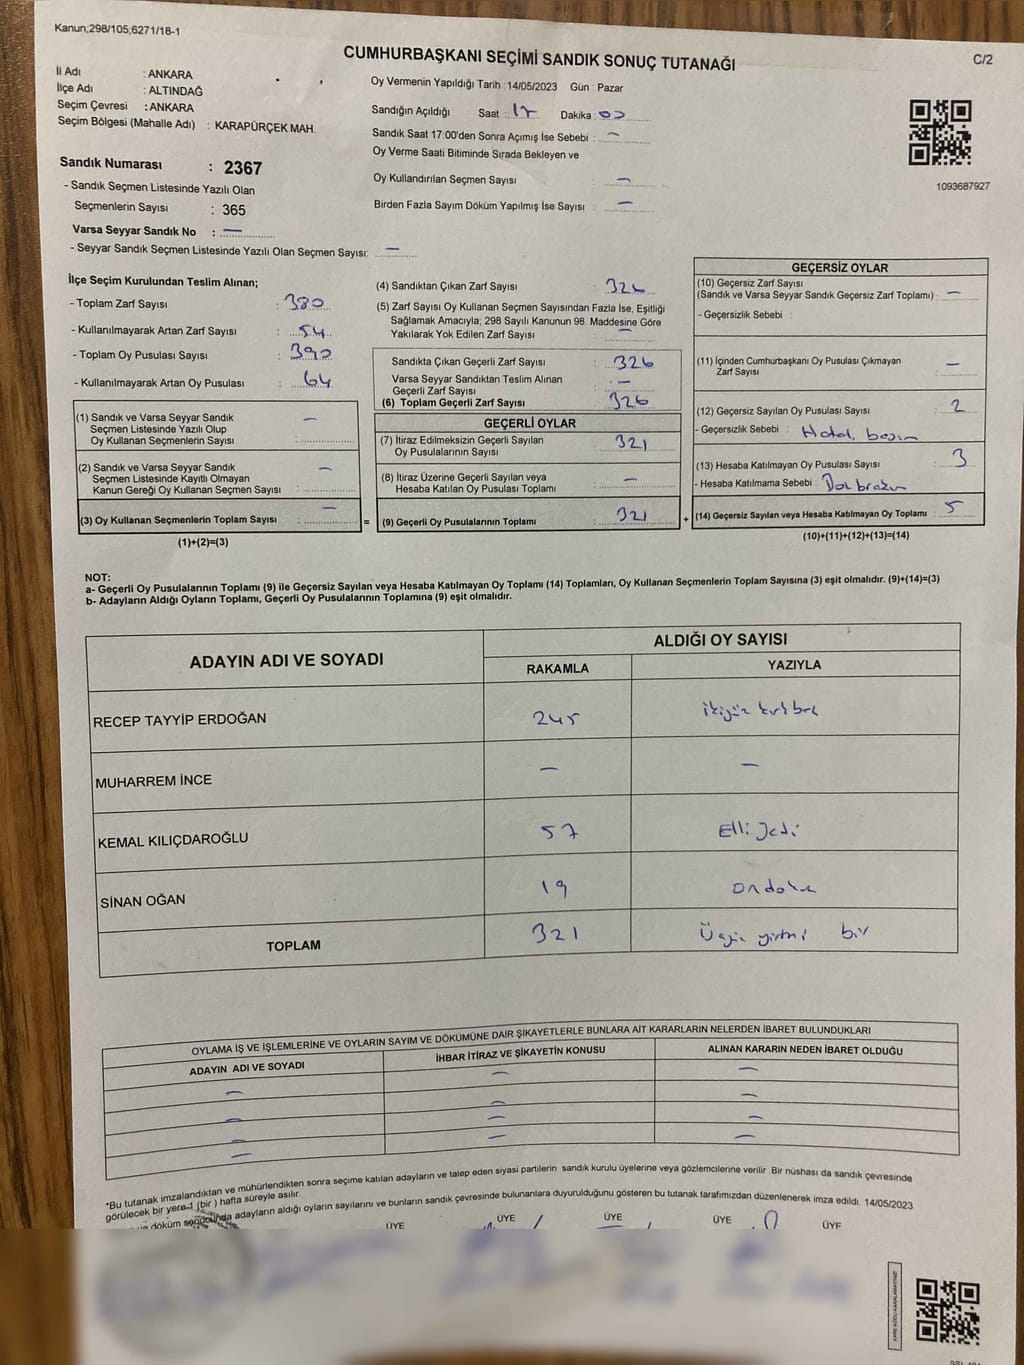 Kanun;298/105,6271/18-1
CUMHURBAŞKANI SEÇİMİ SANDIK SONUÇ TUTANAĞI
C/2
İl Adı : ANKARA
İlçe Adı : ALTINDAĞ
Seçim Çevresi : ANKARA
Seçim Bölgesi (Mahalle Adı) : KARAPÜRÇEK MAH.
Sandık Numarası : 2367
- Sandık Seçmen Listesinde Yazılı Olan
Seçmenlerin Sayısı : 365
Varsa Seyyar Sandık No : —
- Seyyar Sandık Seçmen Listesinde Yazılı Olan Seçmen Sayısı: —
Oy Vermenin Yapıldığı Tarih : 14/05/2023 Gün : Pazar
Sandığın Açıldığı Saat : 17 Dakika : 00
Sandık Saat 17:00'den Sonra Açımış İse Sebebi : —
Oy Verme Saati Bitiminde Sırada Bekleyen ve
Oy Kullandırılan Seçmen Sayısı : —
Birden Fazla Sayım Döküm Yapılmış İse Sayısı : —
1093687927
İlçe Seçim Kurulundan Teslim Alınan;
- Toplam Zarf Sayısı : 380
- Kullanılmayarak Artan Zarf Sayısı : 54
- Toplam Oy Pusulası Sayısı : 390
- Kullanılmayarak Artan Oy Pusulası : 64
(1) Sandık ve Varsa Seyyar Sandık
Seçmen Listesinde Yazılı Olup
Oy Kullanan Seçmenlerin Sayısı : —
(2) Sandık ve Varsa Seyyar Sandık
Seçmen Listesinde Kayıtlı Olmayan
Kanun Gereği Oy Kullanan Seçmen Sayısı : —
(3) Oy Kullanan Seçmenlerin Toplam Sayısı : —
(1)+(2)=(3)
=
(4) Sandıktan Çıkan Zarf Sayısı : 326
(5) Zarf Sayısı Oy Kullanan Seçmen Sayısından Fazla İse, Eşitliği
Sağlamak Amacıyla; 298 Sayılı Kanunun 98. Maddesine Göre
Yakılarak Yok Edilen Zarf Sayısı : —
Sandıkta Çıkan Geçerli Zarf Sayısı : 326
Varsa Seyyar Sandıktan Teslim Alınan
Geçerli Zarf Sayısı : —
(6) Toplam Geçerli Zarf Sayısı : 326
GEÇERLİ OYLAR
(7) İtiraz Edilmeksizin Geçerli Sayılan
Oy Pusulalarının Sayısı : 321
(8) İtiraz Üzerine Geçerli Sayılan veya
Hesaba Katılan Oy Pusulası Toplamı : —
(9) Geçerli Oy Pusulalarının Toplamı : 321
+
GEÇERSİZ OYLAR
(10) Geçersiz Zarf Sayısı
(Sandık ve Varsa Seyyar Sandık Geçersiz Zarf Toplamı) : —
- Geçersizlik Sebebi :
(11) İçinden Cumhurbaşkanı Oy Pusulası Çıkmayan
Zarf Sayısı : —
(12) Geçersiz Sayılan Oy Pusulası Sayısı : 2
- Geçersizlik Sebebi :
(13) Hesaba Katılmayan Oy Pusulası Sayısı : 3
- Hesaba Katılmama Sebebi :
(14) Geçersiz Sayılan veya Hesaba Katılmayan Oy Toplamı : 5
(10)+(11)+(12)+(13)=(14)
NOT:
a- Geçerli Oy Pusulalarının Toplamı (9) ile Geçersiz Sayılan veya Hesaba Katılmayan Oy Toplamı (14) Toplamları, Oy Kullanan Seçmenlerin Toplam Sayısına (3) eşit olmalıdır. (9)+(14)=(3)
b- Adayların Aldığı Oyların Toplamı, Geçerli Oy Pusulalarının Toplamına (9) eşit olmalıdır.
ADAYIN ADI VE SOYADI
ALDIĞI OY SAYISI
RAKAMLA YAZIYLA
RECEP TAYYİP ERDOĞAN 245 ikiyüz kırkbeş
MUHARREM İNCE — —
KEMAL KILIÇDAROĞLU 57 Elli Yedi
SİNAN OĞAN 19 ondokuz
TOPLAM 321 Üçyüz yirmi bir
OYLAMA İŞ VE İŞLEMLERİNE VE OYLARIN SAYIM VE DÖKÜMÜNE DAİR ŞİKAYETLERLE BUNLARA AİT KARARLARIN NELERDEN İBARET BULUNDUKLARI
ADAYIN ADI VE SOYADI İHBAR İTİRAZ VE ŞİKAYETİN KONUSU ALINAN KARARIN NEDEN İBARET OLDUĞU
— — —
— — —
— — —
— — —
*Bu tutanak imzalandıktan ve mühürlendikten sonra seçime katılan adayların ve talep eden siyasi partilerin sandık kurulu üyelerine veya gözlemcilerine verilir. Bir nüshası da sandık çevresinde
görülecek bir yere 1 (bir ) hafta süreyle asılır.
döküm sonucunda adayların aldığı oyların sayılarını ve bunların sandık çevresinde bulunanlara duyurulduğunu gösteren bu tutanak tarafımızdan düzenlenerek imza edildi. 14/05/2023
ÜYE ÜYE ÜYE ÜYE ÜYE